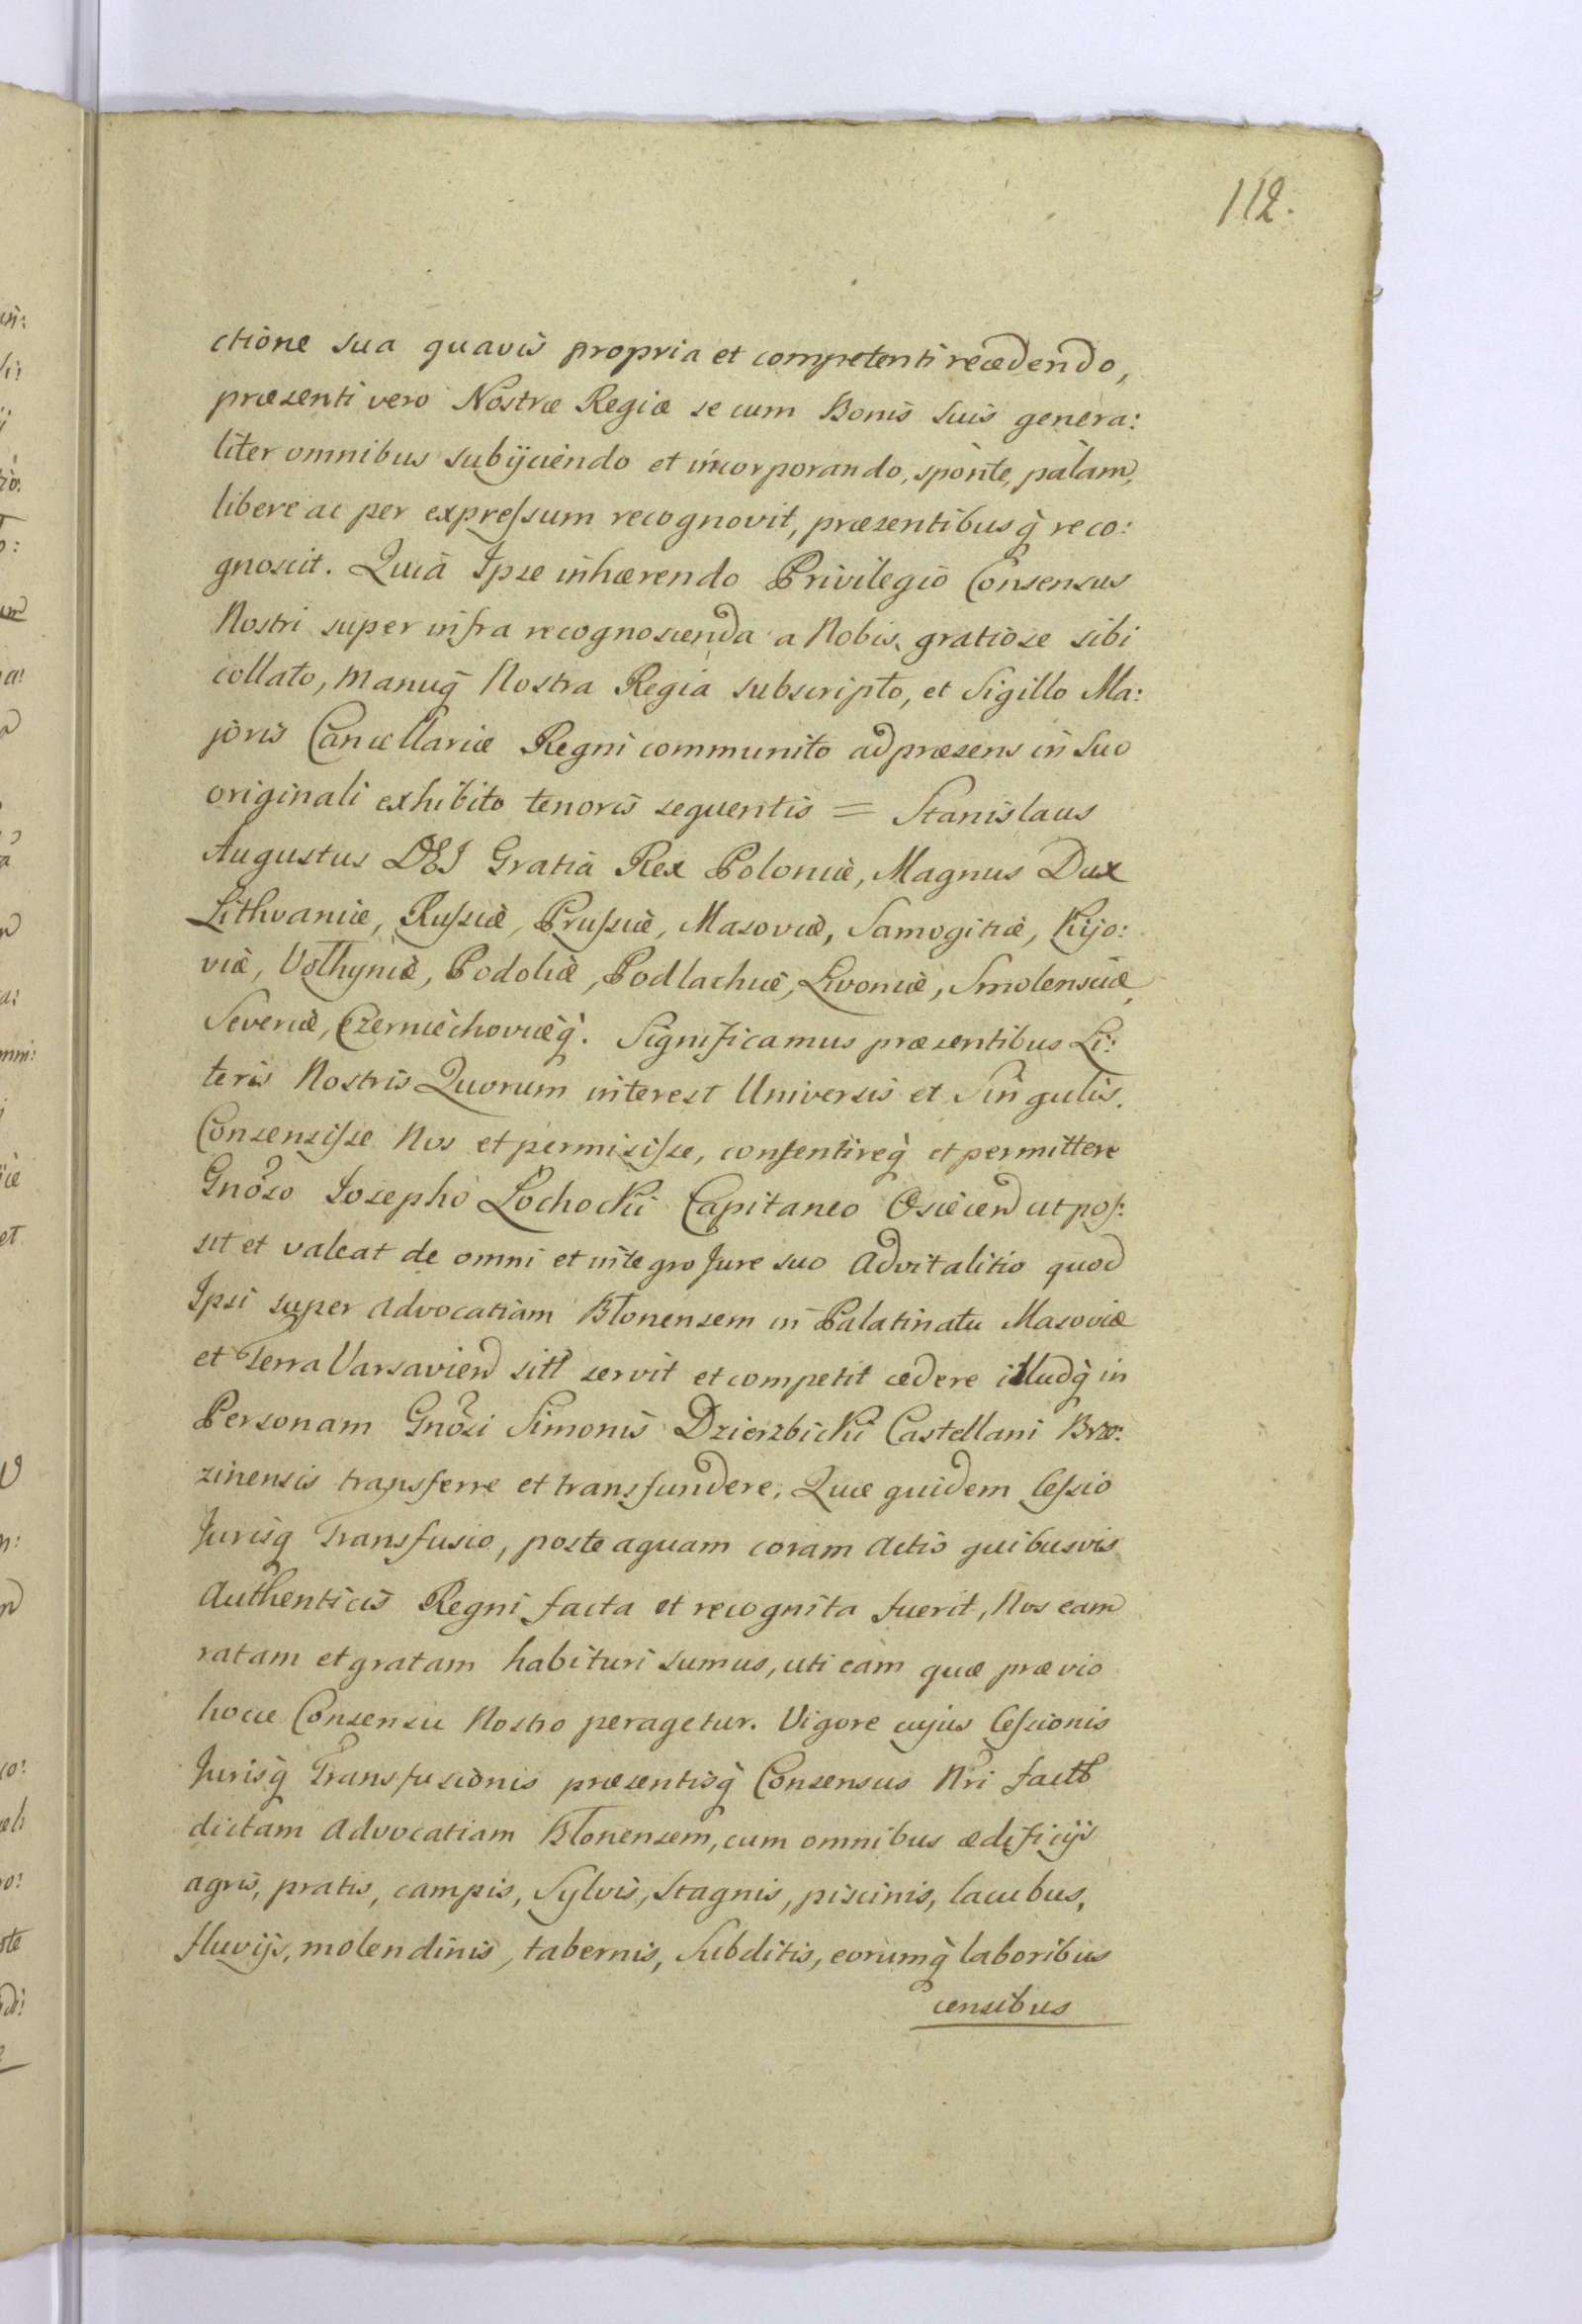 112.
ctione sua quavis propria et competenti recedendo,
præsenti vero Nostræ Regiæ se cum Bonis suis genera:
liter omnibus subijciendo et incorporando, sponte, palam,
libere ac per expressum recognovit, præsentibusq̀ reco:
gnoscit. Quia Ipse inhærendo Privilegio Consensus
Nostri super infra recognoscenda a Nobis gratiose sibi
collato, manuq̀ Nostra Regia subscripto, et Sigillo Ma:
joris Cancellariæ Regni communito ad præsens in suo
originali exhibito tenoris sequentis = Stanislaus
Augustus DEI Gratia Rex Poloniæ, Magnus Dux
Lithvaniæ, Russiæ, Prussiæ, Masoviæ, Samogitiæ, Kijo:
viæ, Volhyniæ, Podoliæ, Podlachiæ, Livoniæ, Smolensciæ,
Severiæ, Czerniechoviæq̀. Significamus præsentibus Li:
teris Nostris Quorum interest Universis et Singulis.
Consensisse Nos et permisisse, consentireq̀ et permittere
Gnõso Josepho Łochocki Capitaneo Osiecen ut pos:
sit et valeat de omni et integro Jure suo Advitalitio quod
Ipsi super Advocatiam Błonensem in Palatinatu Masoviæ
et Terra Varsavien sitt servit et competit cedere illudq̀ in
Personam Gnõsi Simonis Dzierzbicki Castellani Brze:
zinensis transferre et transfundere, Quæ quidem Cessio
Jurisq̀ Transfusio, posteaquam coram Actis quibusvis
Authenticis Regni facta et recognita fuerit, Nos eam
ratam et gratam habituri sumus, uti eam quæ prævio
hocce Consensu Nostro peragetur. Vigore cujus Cessionis
Jurisq̀ Transfusionis præsentisq̀ Consensus Nri factt
dictam Advocatiam Błonensem, cum omnibus ædificijs
agris, pratis, campis, Sylvis, stagnis, piscinis, lacubus,
fluvijs, molendinis, tabernis, Subditis, eorumq̀ laboribus
censibus